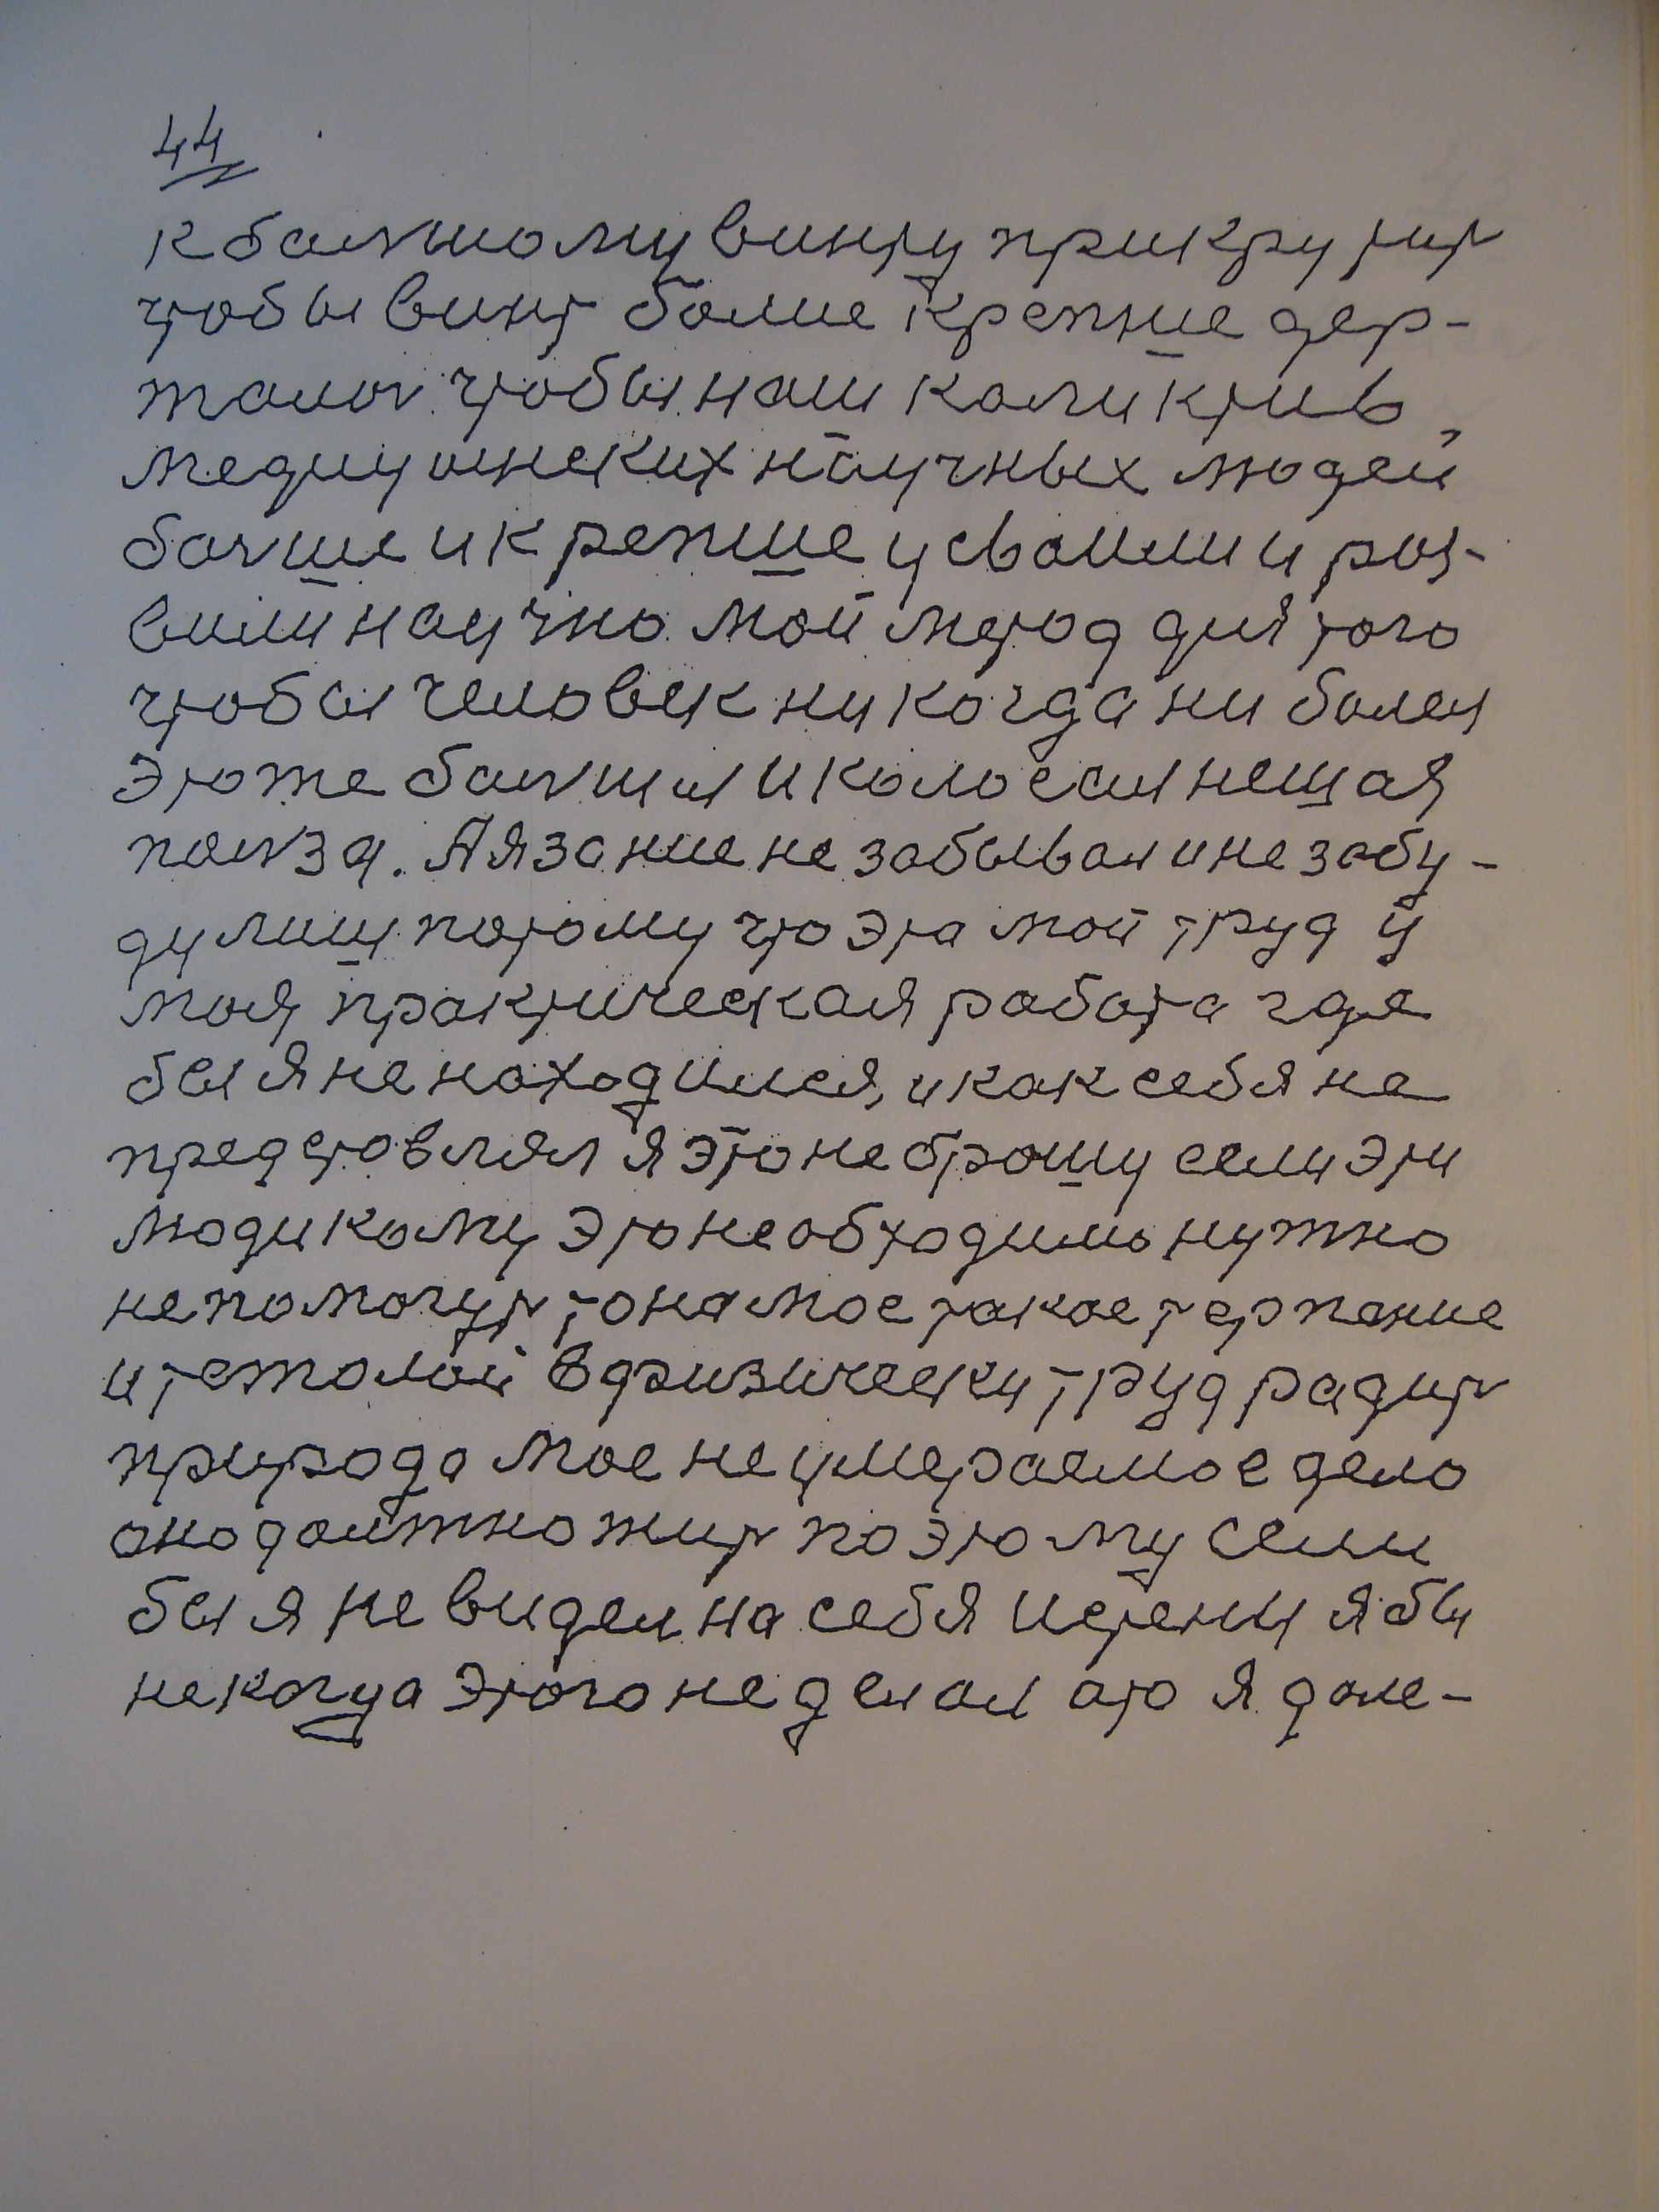 44
к балшому винту прикрутит
чтобы винт болше крепше дер-
жалсь чтобы наш коликтив
медицинских научных людей
болше и крепше усвоили и роз-
вили научно мой метод для того
чтобы человек никогда ни болел
это же балшы и колосалнешая
ползa. А я за ние не забывал и не забу-
ду лиш потому что эта мой труд и
моя практическая работа где
бы я не находился, и как себя не
представлял я это не брошу если эти
люди кому это необходимо нужно
не помогут то на мое такое терпение
и тежолой в физически труд радит
природа мое не умераемое дело
оно должно жит по этому если
бы я не видел на себя истены я бы
некогда этого не делал а то я доле-